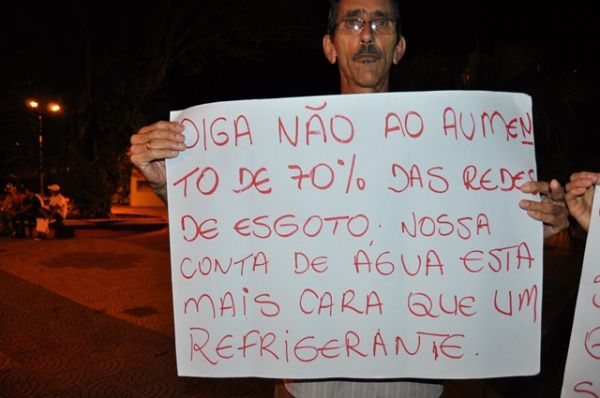 DIGA NÃO AO AUMEN
TO DE 70% DAS REDES
DE ESGOTO. NOSSA
CONTA DE ÁGUA ESTA
MAIS CARA QUE UM
REFRIGERANTE.